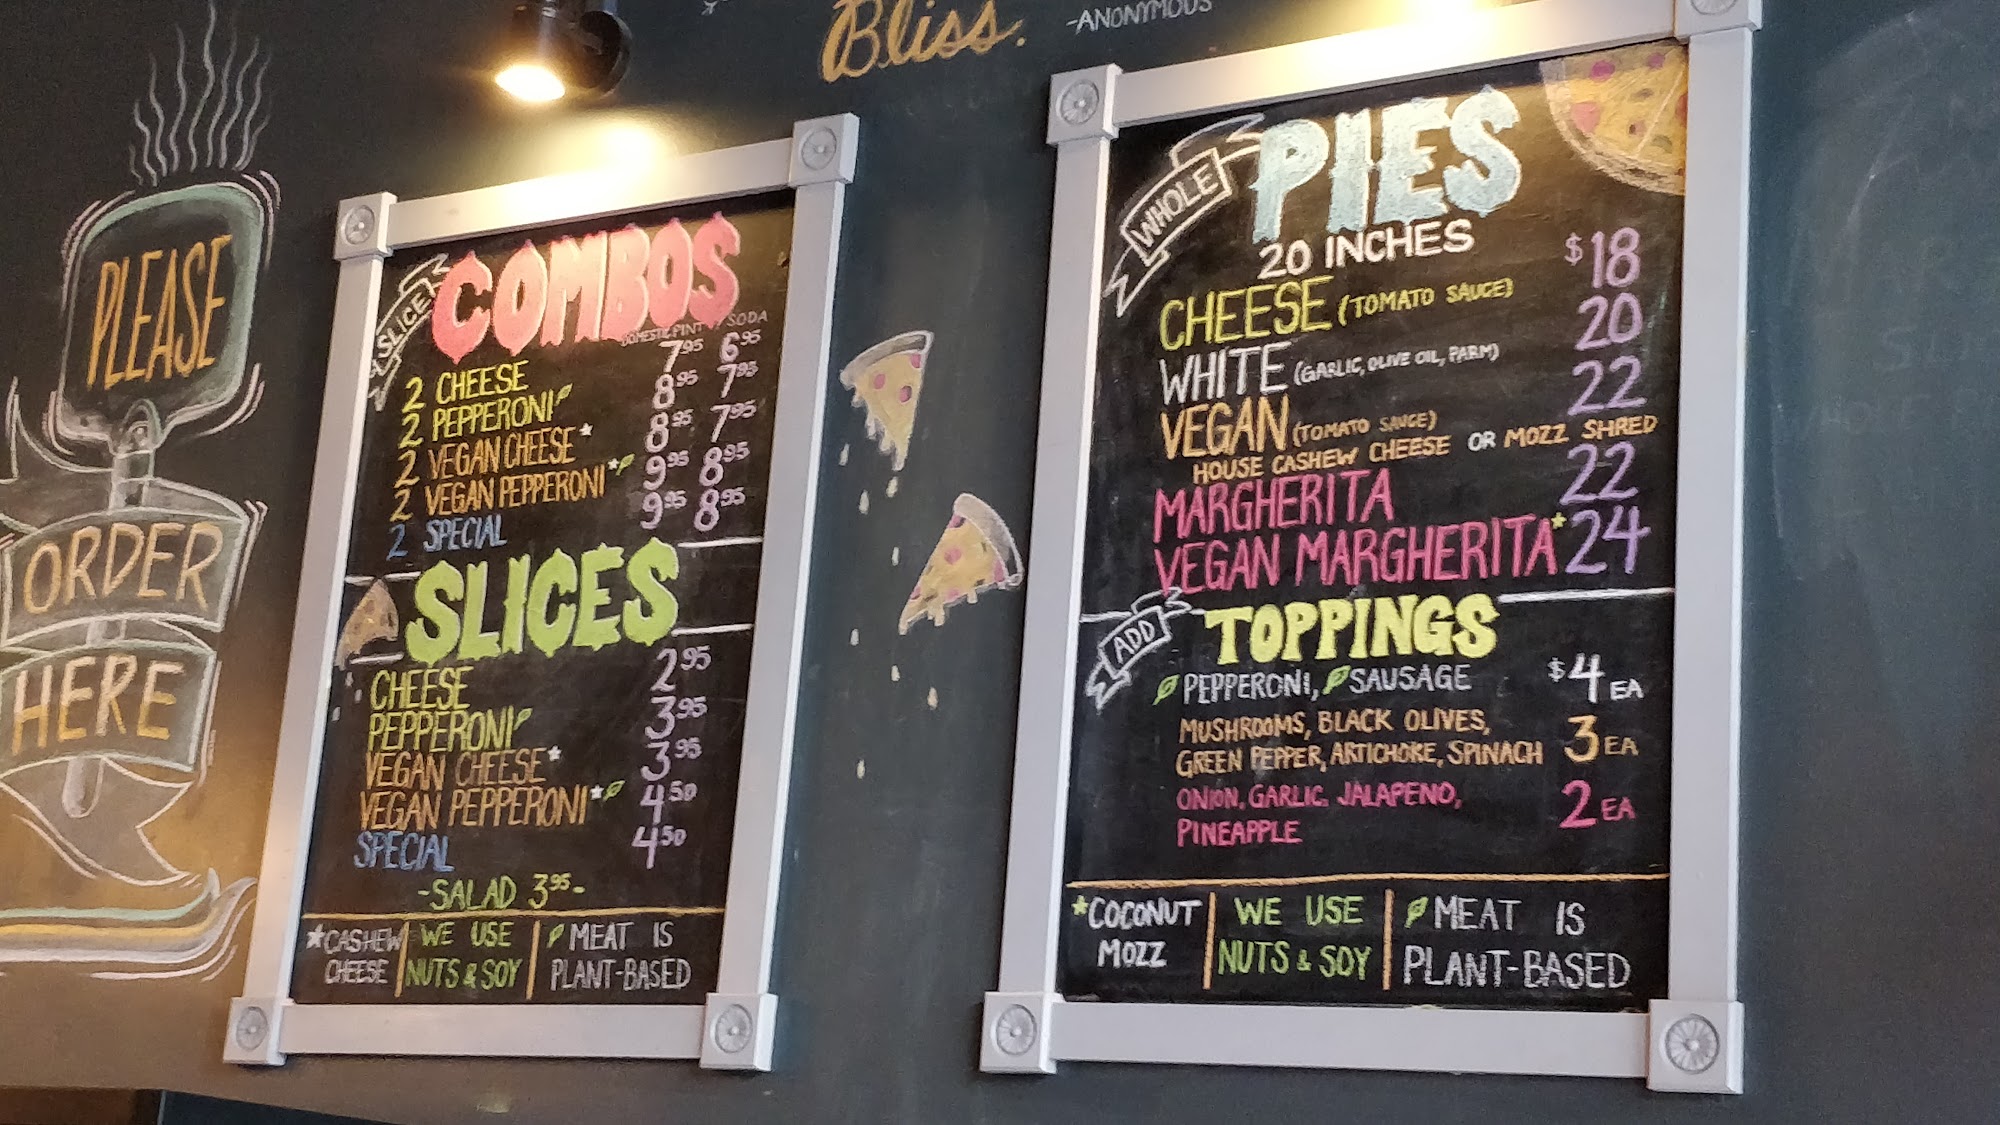 Bliss.
-ANONYMOUS
PLEASE
ORDER
HERE
SLICE
COMBOS
DOMESTIC PINT / SODA
2 CHEESE 7 95 6 95
2 PEPPERONI 8 95 7 95
2 VEGAN CHEESE* 8 95 7 95
2 VEGAN PEPPERONI* 9 95 8 95
2 SPECIAL 9 95 8 95
SLICES
CHEESE 2 95
PEPPERONI 3 95
VEGAN CHEESE* 3 95
VEGAN PEPPERONI* 4 50
SPECIAL 4 50
-SALAD 3 95-
*CASHEW CHEESE
WE USE NUTS & SOY
MEAT IS PLANT-BASED
WHOLE
PIES
20 INCHES
CHEESE (TOMATO SAUCE) $18
WHITE (GARLIC, OLIVE OIL, PARM) 20
VEGAN (TOMATO SAUCE) 22
HOUSE CASHEW CHEESE OR MOZZ SHRED
MARGHERITA 22
VEGAN MARGHERITA* 24
ADD
TOPPINGS
PEPPERONI, SAUSAGE $4 EA
MUSHROOMS, BLACK OLIVES,
GREEN PEPPER, ARTICHOKE, SPINACH 3 EA
ONION, GARLIC, JALAPENO,
PINEAPPLE 2 EA
*COCONUT MOZZ
WE USE NUTS & SOY
MEAT IS PLANT-BASED